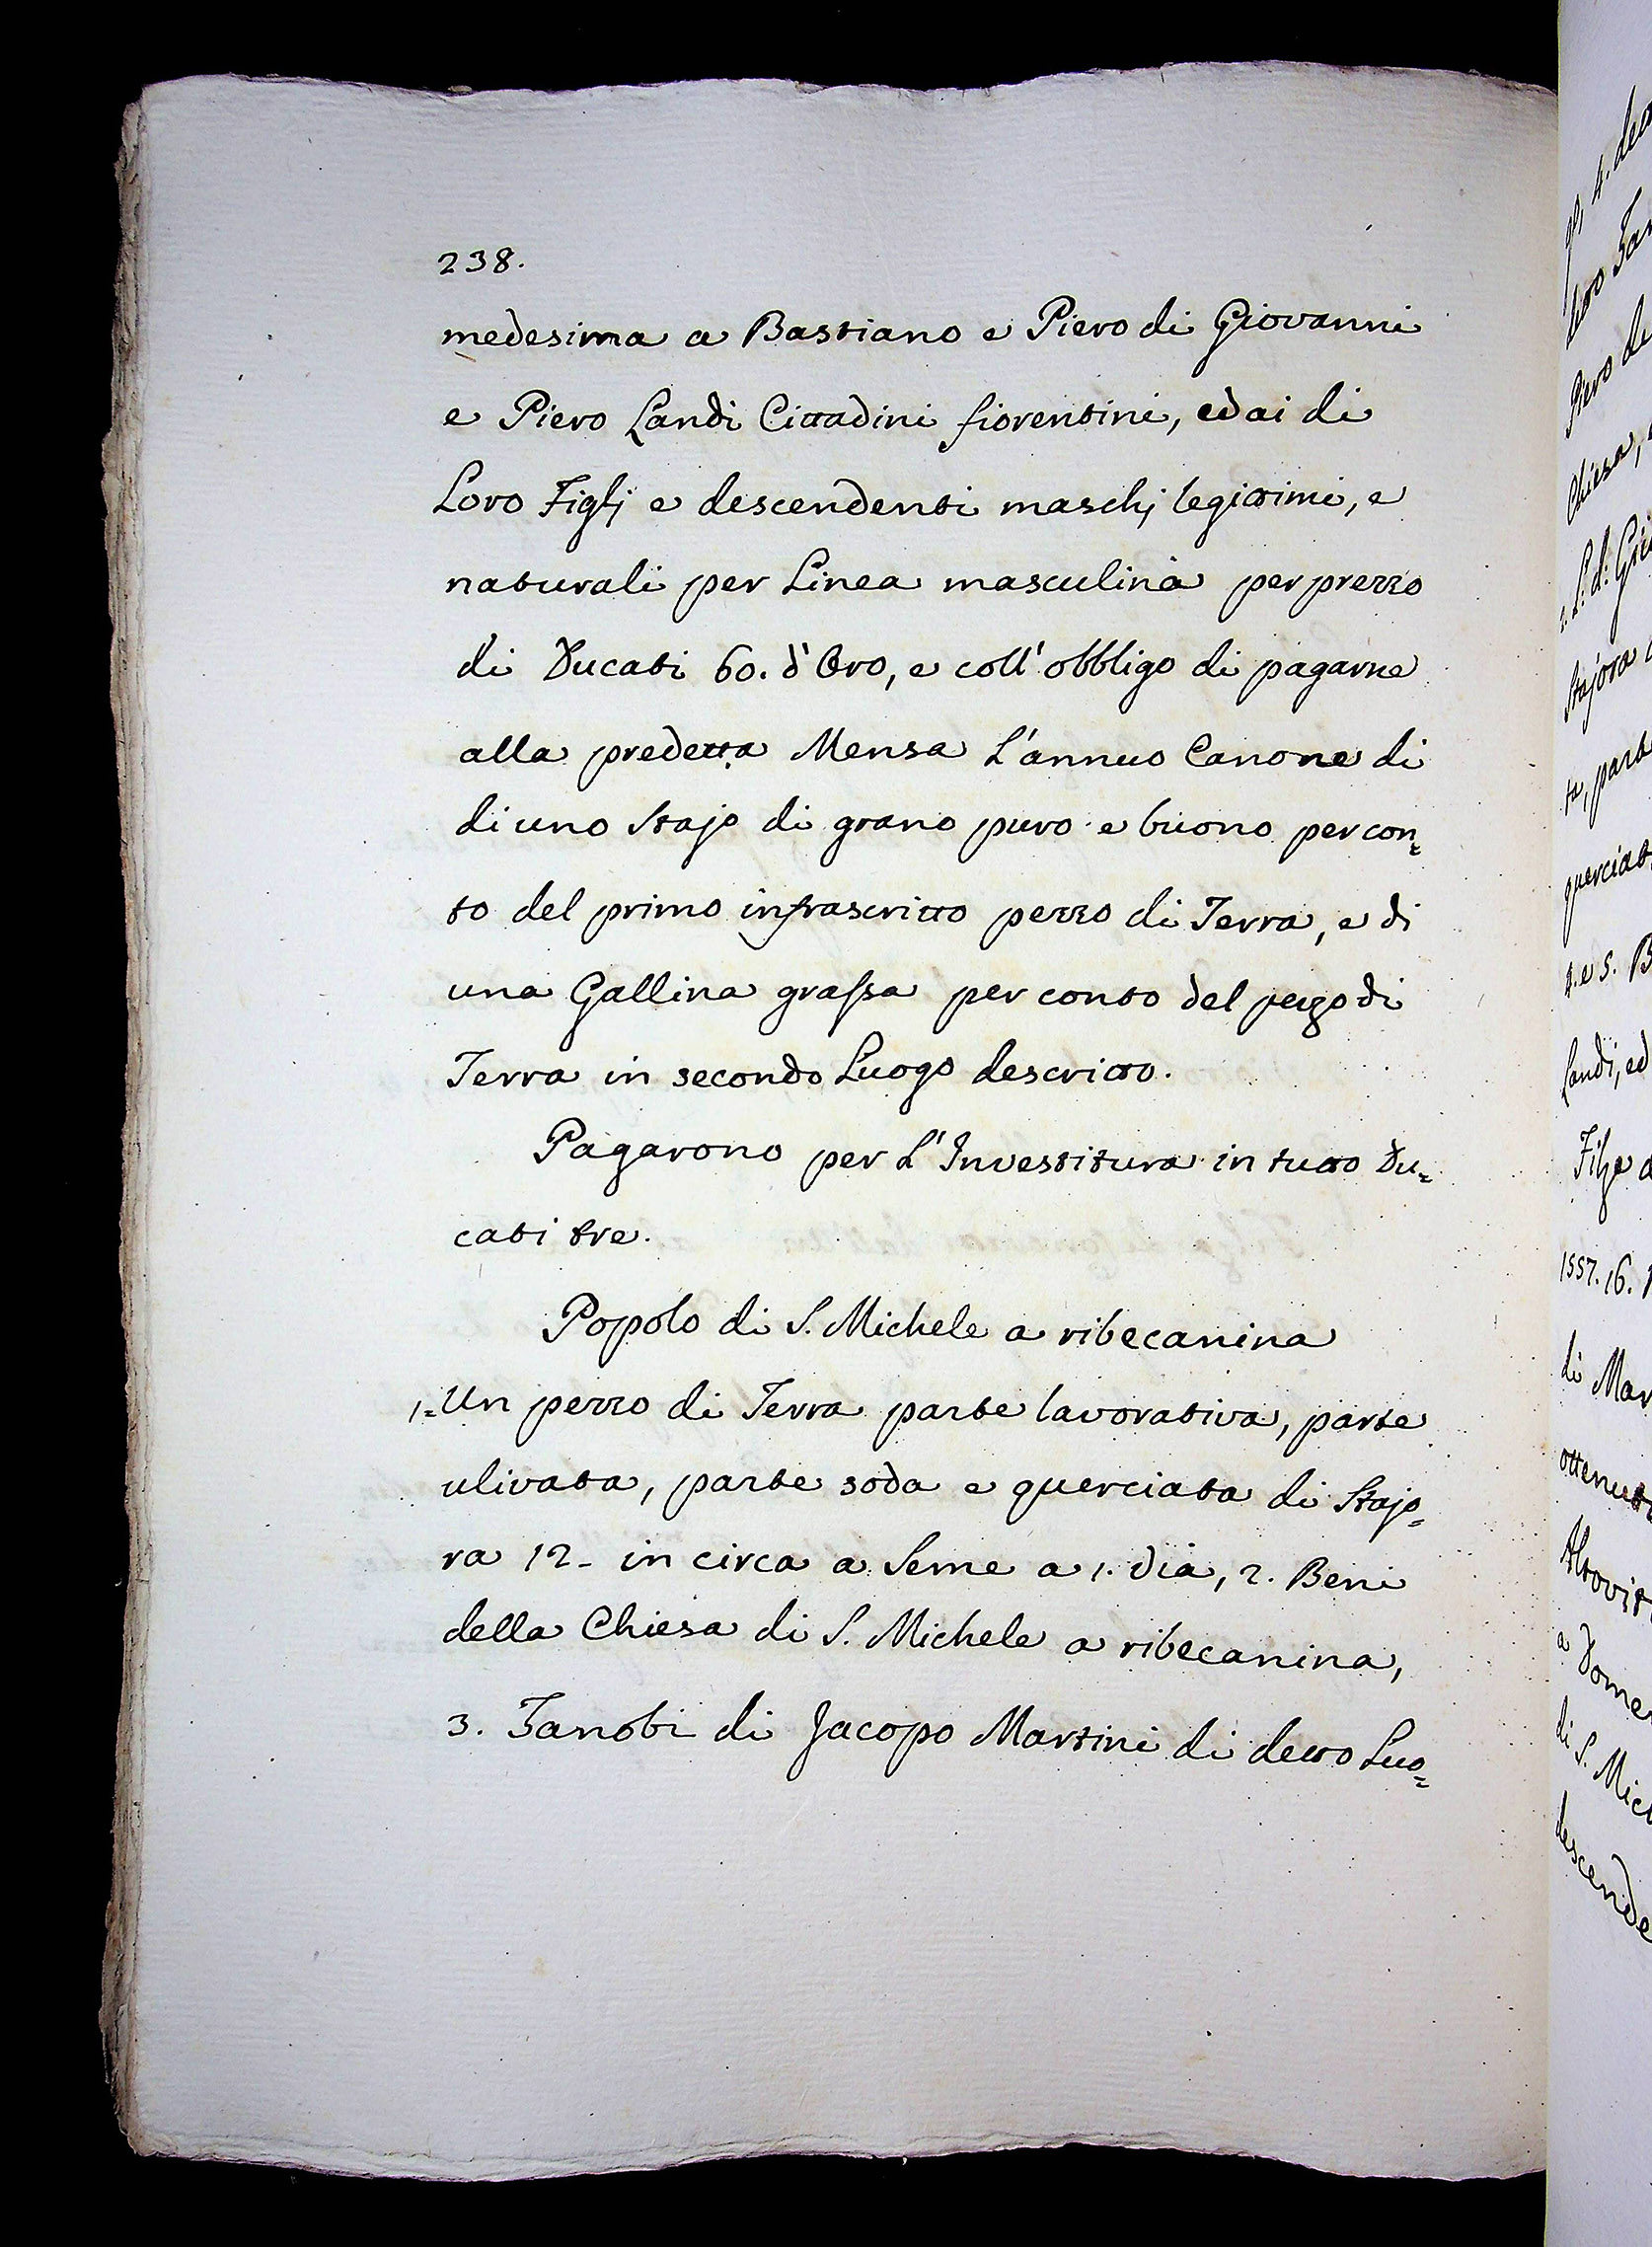 238.
medesima a Bastiano e Piero di Giovanni
e Piero Landi Cittadini fiorentini, ed ai di
Loro Figlj e descendenti maschj legittimi, e
naturali per Linea masculina per prezzo
di Ducati 60. d'Oro, e coll' obbligo di pagarne
alla predetta Mensa L'annuo Canone di
di uno Stajo di grano puro e buono per con=
to del primo infrascritto pezzo di Terra, e di
una Gallina grassa per conto del pezzo di
Terra in secondo Luogo descritto.
Pagarono per L'Investitura in tutto Du=
cati tre.
Popolo di S. Michele a ribecanina
1= Un pezzo di Terra parte lavorativa, parte
ulivata, parte soda e querciata di Stajo=
ra 12- in circa a Seme a 1. Via, 2. Beni
della Chiesa di S. Michele a ribecanina,
3. Zanobi di Jacopo Martini di detto Luo=
4. dell
loro
Piero de
Chiesa,
Stajora
ta, parte
querciat
4. e 5. B
Landi, ed
Filza d
1557. 16.
di Mar
ottenut
Altovit
a Dome
di S. Mic
descende